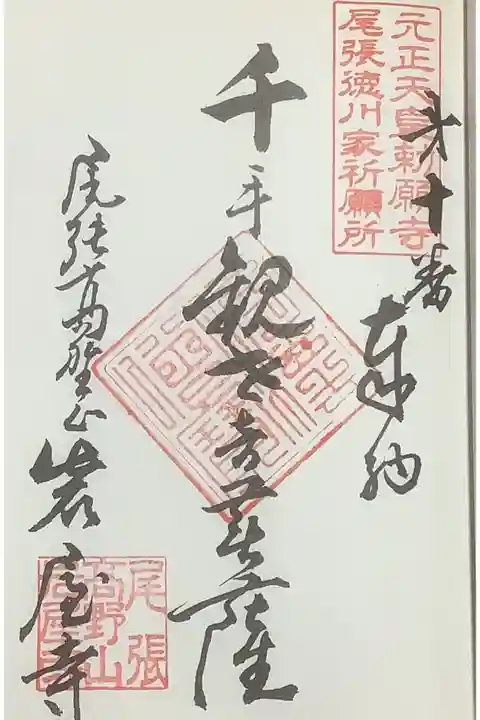 元正天皇勅願寺
尾張徳川家祈願所
第十番
奉納
千手観世音菩薩
尾張高野山
岩屋寺
尾張
高野山
岩屋寺